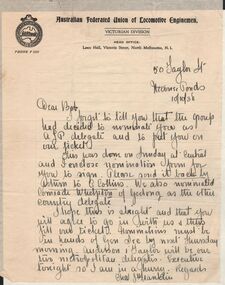 Australian Federated Union of Locomotive Enginemen,
VICTORIAN DIVISION
HEAD OFFICE:
Lees Hall, Victoria Street, North Melbourne, N. 1.
PHONE F
50 Taylor St
Moonee Ponds
Dear Bob,
I want to tell you that the group
had decided to nominate you as
delegate and to put you on
our ticket.
This was done on Sunday at Central
and I enclose nomination form for
you to sign. Please send it back by
return to C. Collins. We also nominated
Comrade of Geelong as the other
country delegate.
I hope this is alright and that you
will agree to go in with us & itself
fill our ticket. Nominations must be
in hands of Gen Sec by next Thursday
morning. Anderson & Taylor will be our
two metropolitan delegates. Executive
tonight so I am in a hurry. Regards
Chas